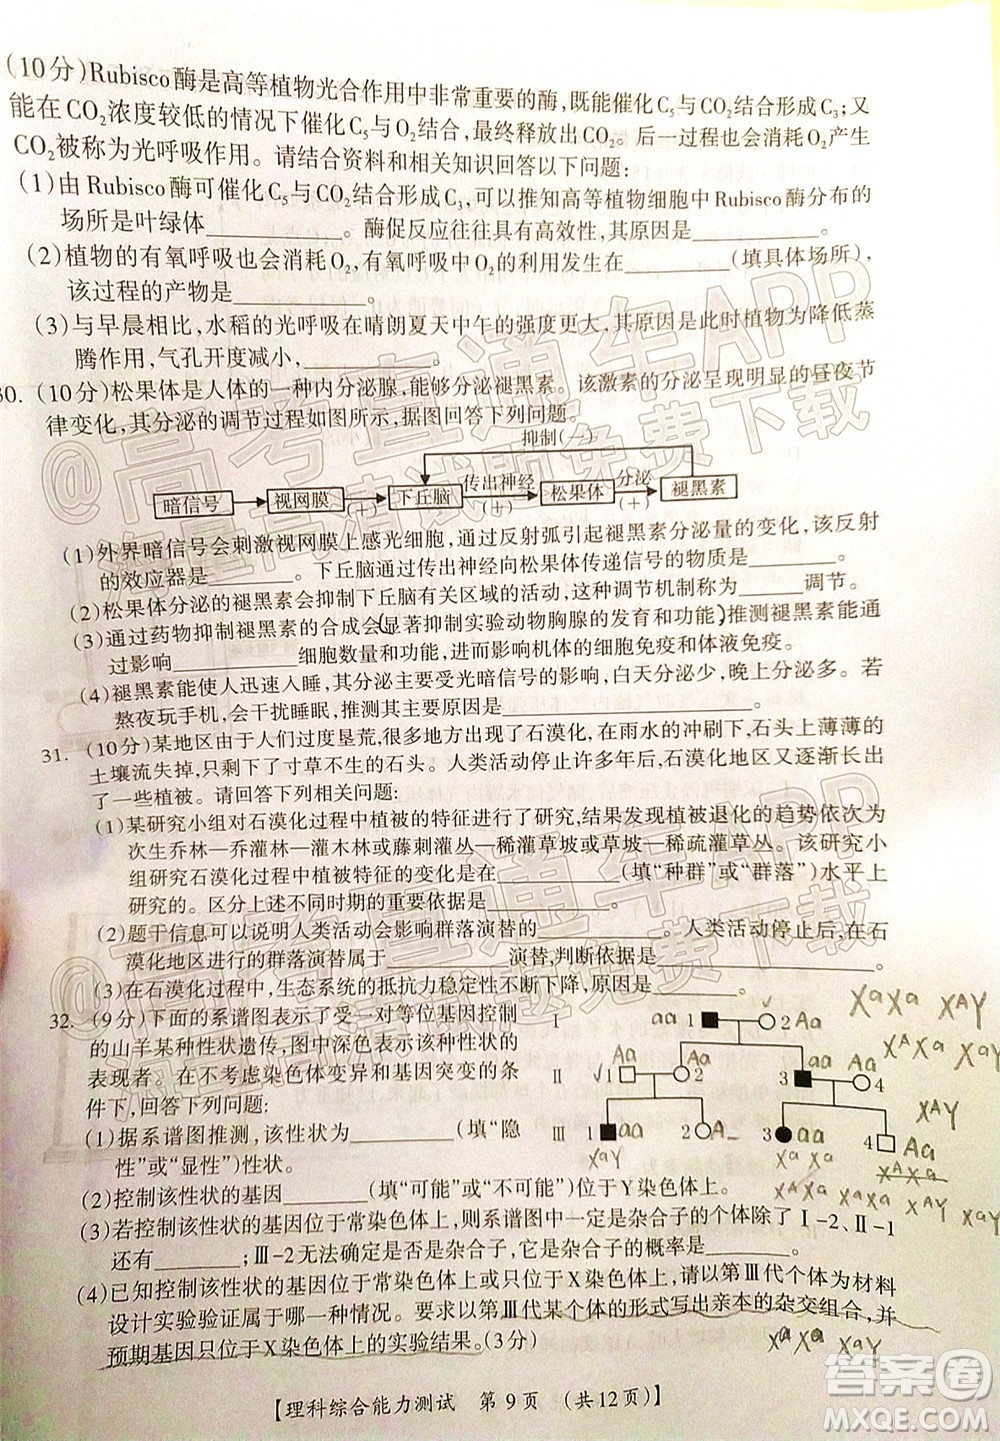 (10分)Rubisco酶是高等植物光合作用中非常重要的酶,既能催化C₅与CO₂结合形成C₃;又
能在CO₂浓度较低的情况下催化C₅与O₂结合,最终释放出CO₂。后一过程也会消耗O₂产生
CO₂被称为光呼吸作用。请结合资料和相关知识回答以下问题:
(1)由Rubisco酶可催化C₅与CO₂结合形成C₃,可以推导高等植物细胞中Rubisco酶分布的
场所是叶绿体________。酶促反应往往具有高效性,其原因是________。
(2)植物的有氧呼吸也会消耗O₂,有氧呼吸中O₂的利用发生在________(填具体场所),
该过程的产物是________。
(3)与早晨相比,水稻的光呼吸在晴朗夏天中午的强度更大,其原因是此时植物为降低蒸
腾作用,气孔开度减小,________。
30.(10分)松果体是人体的一种内分泌腺,能够分泌褪黑素。该激素的分泌呈现明显的昼夜节
律变化,其分泌的调节过程如图所示,据图回答下列问题。
抑制(一)
暗信号 视网膜 (+) 下丘脑 传出神经 (+) 松果体 分泌 (+) 褪黑素
(1)外界暗信号会刺激视网膜上感光细胞,通过反射弧引起褪黑素分泌量的变化,该反射
的效应器是________。下丘脑通过传出神经向松果体传递信号的物质是________。
(2)松果体分泌的褪黑素会抑制下丘脑有关区域的活动,这种调节机制称为______调节。
(3)通过药物抑制褪黑素的合成会显著抑制实验动物胸腺的发育和功能,推测褪黑素能通
过影响________细胞数量和功能,进而影响机体的细胞免疫和体液免疫。
(4)褪黑素能使人迅速入睡,其分泌受光暗信号的影响,白天分泌少,晚上分泌多。若
熬夜玩手机,会干扰睡眠,推测其原因是________________。
31.(10分)某地区由于人们过度垦荒,很多地方出现了石漠化,在雨水的冲刷下,石头上薄薄的
土壤流失掉,只剩下了寸草不生的石头。人类活动停止许多年后,石漠化地区又出现
了一些植被。请回答下列相关问题:
(1)某研究小组对石漠化过程中植被的特征进行了研究,结果发现植被退化的趋势依次为
次生乔林—乔灌林—灌木林或藤刺灌丛—稀灌草坡或草坡—稀疏灌草丛。该研究小
组研究石漠化过程中植被特征的变化是在________(填“种群”或“群落”)水平上
研究的。区分上述不同时期的重要依据是________。
(2)题干信息可以说明人类活动会影响群落演替的________。人类活动停止后,在石
漠化地区进行的群落演替属于________演替,判断依据是________。
(3)在石漠化过程中,生态系统的抵抗力稳定性不断下降,原因是________。
32.(9分)下面的系谱图表示了受一对等位基因控制
的山羊某种性状遗传,图中深色表示该种性状的
表现者。在不考虑染色体变异和基因突变的条
件下,回答下列问题:
Ⅰ aa 1 2 Aa
Ⅱ 1 Aa 2 3 aa 4 Aa
Ⅲ 1 aa 2 A_ 3 aa 4 Aa
(1)据系谱图推测,该性状为________(填“隐
性”或“显性”)性状。
(2)控制该性状的基因________(填“可能”或“不可能”)位于Y染色体上。
(3)若控制该性状的基因位于常染色体上,则系谱图中一定是杂合子的个体除了Ⅰ-2、Ⅱ-1
还有________;Ⅲ-2无法确定是否是杂合子,它是杂合子的概率是________。
(4)已知控制该性状的基因位于常染色体上或只位于X染色体上,请以第Ⅲ代山羊为材料
设计实验验证属于哪一种情况。要求以第Ⅲ代某个体的形式写出亲本的杂交组合,并
预期基因只位于X染色体上的实验结果。(3分)
【理科综合能力测试 第9页 (共12页)】
@高考直通车APP
答案圈
MXQE.COM